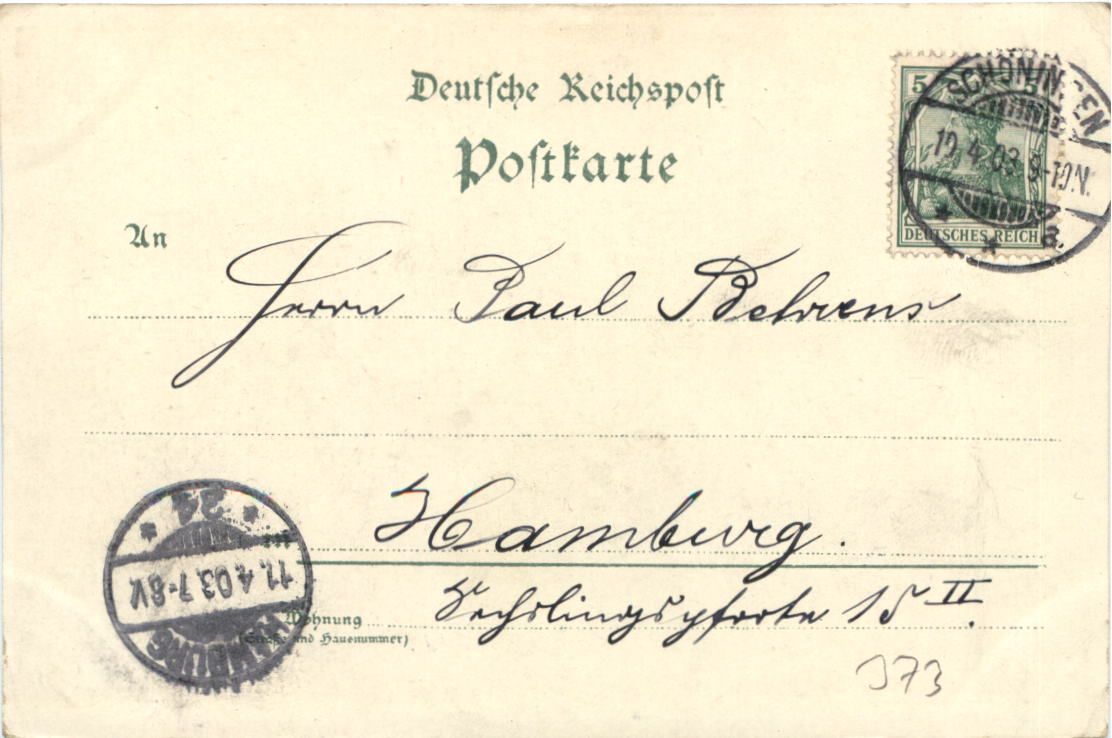 Deutsche Reichspost
Postkarte
5 5
SCHÖNINGEN
10.4.03.9-10N.
* * a.
DEUTSCHES REICH
An
Herrn Paul Behrens
Hamburg.
in
Wohnung
(Straße und Hausnummer)
Sechslingspforte 15 II
HAMBURG
11.4.03.7-8V.
* 24 *
373